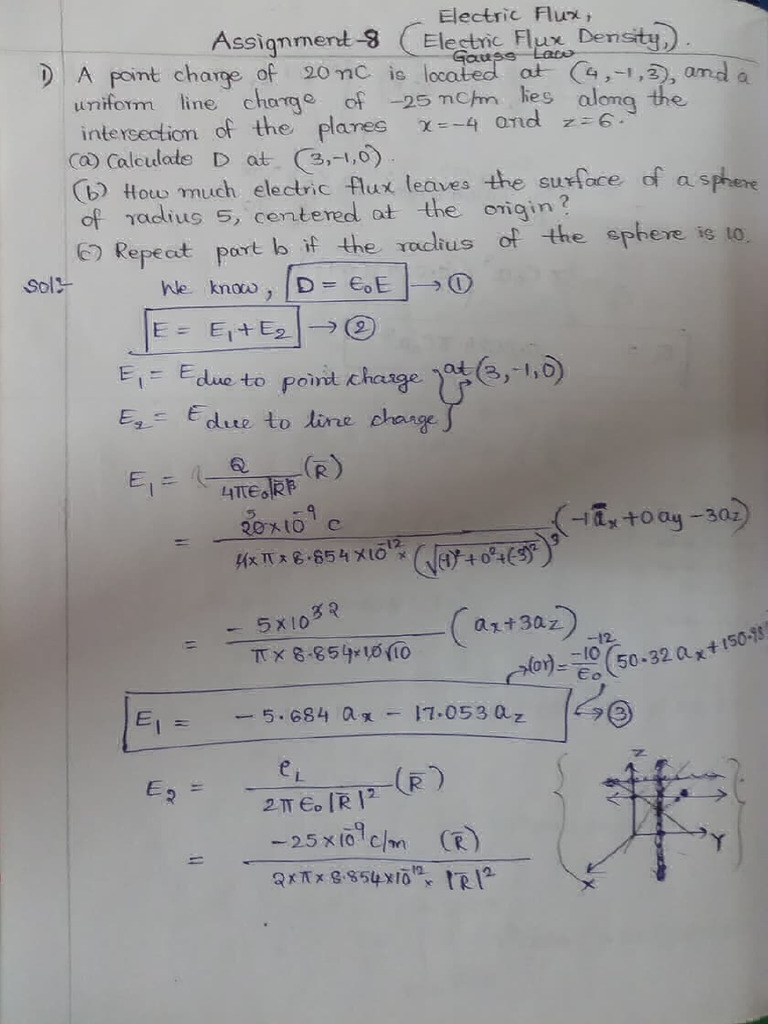 Electric Flux,
Assignment-8 (Electric Flux Density,).
Gauss Law
1) A point charge of 20 nC is located at (4,-1,3), and a
uniform line charge of -25 nC/m lies along the
intersection of the planes x=-4 and z=6.
(a) Calculate D at (3,-1,0).
(b) How much electric flux leaves the surface of a sphere
of radius 5, centered at the origin?
(c) Repeat part b if the radius of the sphere is 10.
Sol:- We know, D = ε₀E → ①
E = E₁+E₂ → ②
E₁ = E due to point charge } at (3,-1,0)
E₂ = E due to line charge }
E₁ = Q / 4πε₀|R̄|³ (R̄)
= 20×10⁻⁹ C / 4×π×8.854×10⁻¹²×(√(-1)²+0²+(-3)²)³ (-1āx+0ay-3az)
= -5×10³ / π×8.854×10√10 (ax+3az)
→(or) = -10⁻¹²/ε₀ (50.32ax+150.98
E₁ = -5.684 ax - 17.053 az → ③
E₂ = ρL / 2πε₀|R̄|² (R̄)
= -25×10⁻⁹ C/m (R̄) / 2×π×8.854×10⁻¹²× |R̄|²
Z
Y
X